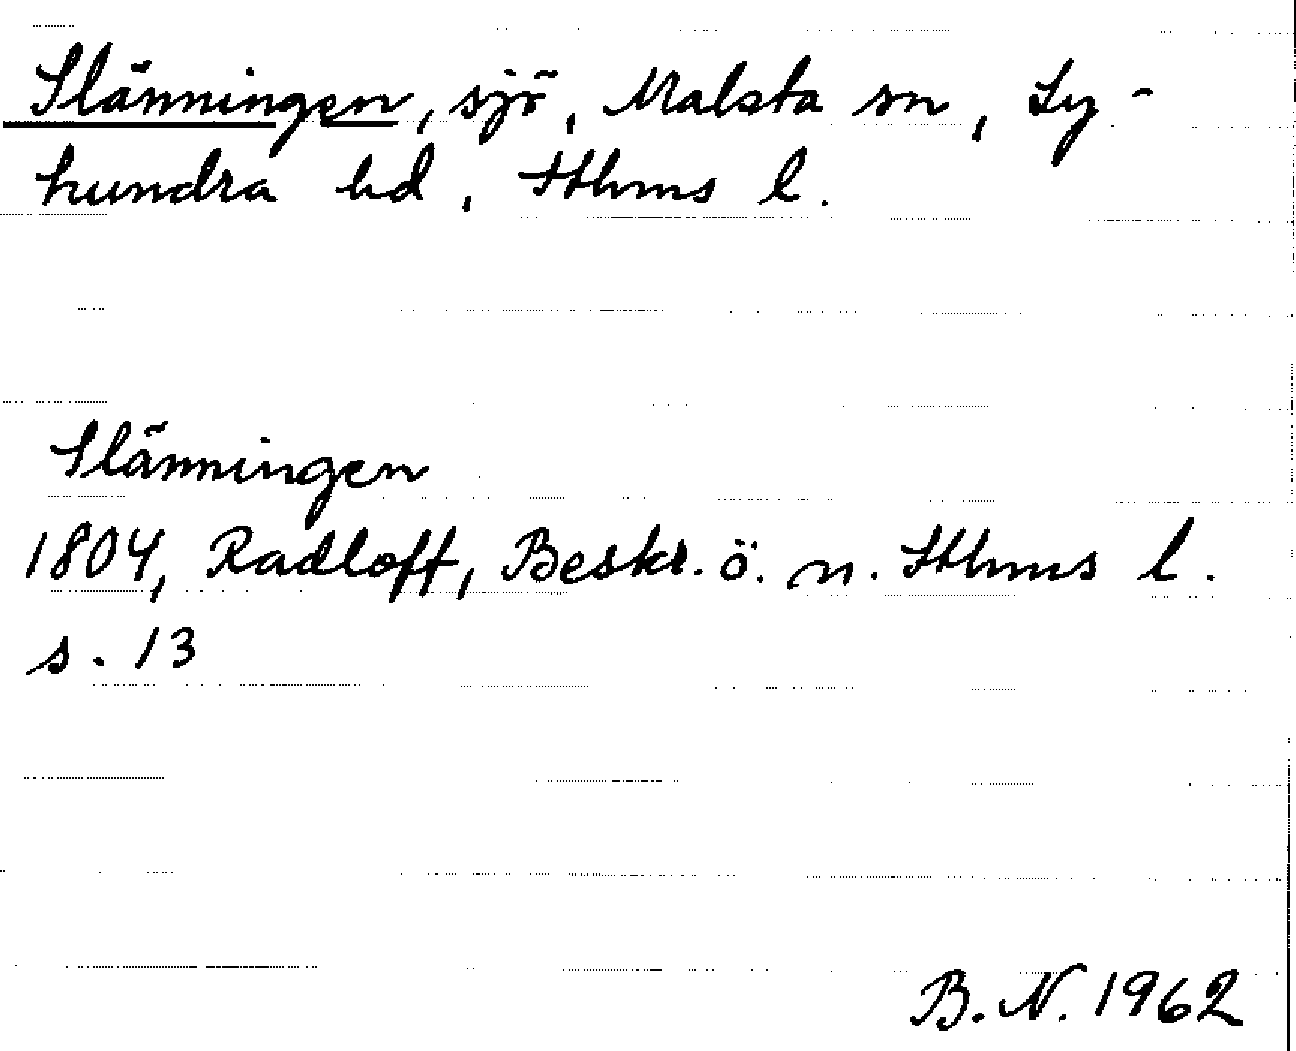 Slänningen, sjö, Malsta sn, Ly-
hundra hd, Sthms l.
Slänningen
1804, Radloff, Beskr. ö. n. Sthms l.
s. 13
B.N. 1962